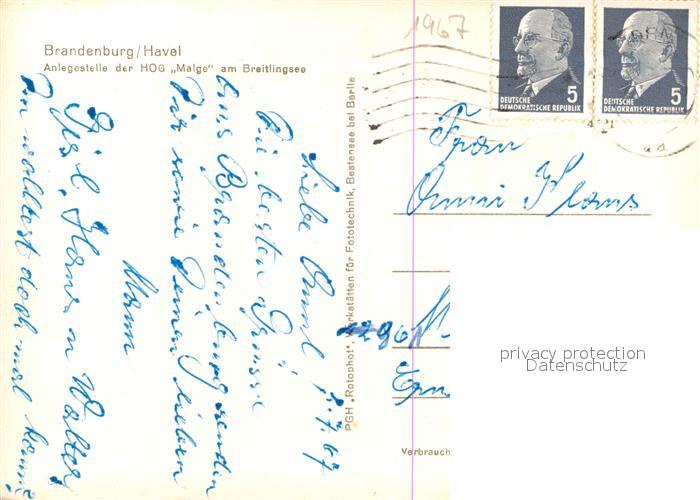 1967
Brandenburg/Havel
Anlegestelle der HOG „Malge“ am Breitlingsee
DEUTSCHE
DEMOKRATISCHE REPUBLIK
5
DEUTSCHE
DEMOKRATISCHE REPUBLIK
5
7.7.67
Liebe
Die besten Grüsse
aus Brandenburg senden
Dir sowie Deinen lieben
Mann
Hans u Walter
Du wolltest doch mal komm
PGH „Rotophot“, Werkstätten für Fototechnik, Bestensee bei Berlin
Frau
Klaus
privacy protection
Datenschutz
Verbrauch